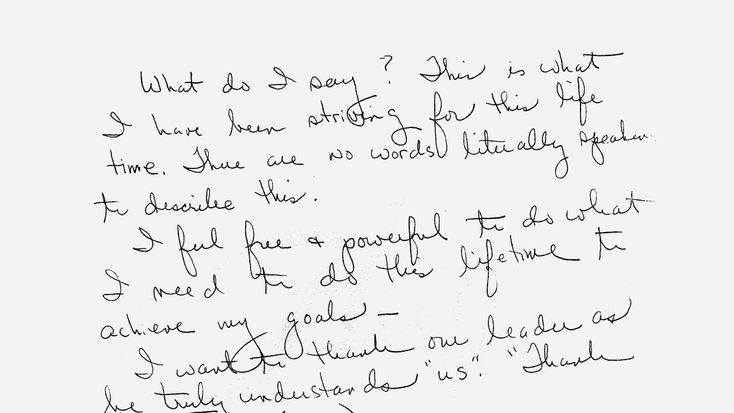 What do I say? This is what
I have been striving for this life
time. There are no words literally speaken
to describe this.
I feel free & powerful to do what
I need to do this lifetime to
achieve my goals —
I want to thank our leader as
he truly understands "us". "Thank